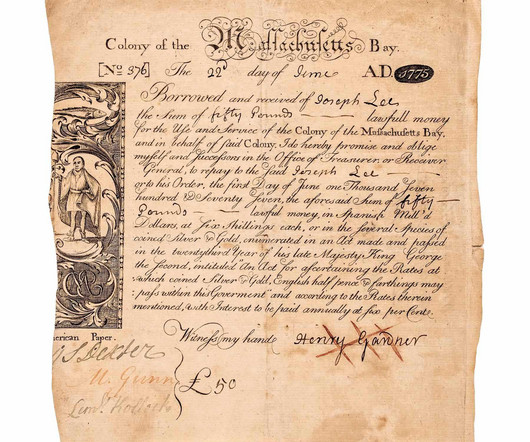 Colony of the Massachusetts Bay.
[No 376] The 22d day of June AD 1775
Borrowed and received of Joseph Lee
the Sum of fifty Pounds lawfull money
for the Use and Service of the Colony of the Massachusetts Bay.
and in behalf of said Colony, I do hereby promise and oblige
myself and Successors in the Office of Treasurer, or Receiver
General, to repay to the said Joseph Lee
or to his Order, the first Day of June one Thousand Seven
hundred & Seventy Seven, the aforesaid Sum of fifty
Pounds lawful money, in Spanish Mill'd
Dollars, at Six Shillings each, or in the several Species of
coined Silver & Gold, enumerated in an Act made and passed
in the twenty third Year of his late Majesty King George
the Second, intitled An Act for ascertaining the Rates at
which coined Silver & Gold, English half pence & farthings may
pass within this Goverment and according to the Rates therein
mentioned, with Interest to be paid annually at six per Cent.
Witness my hand Henry Gardner
erican Paper.
Dexter
Gunn
£50